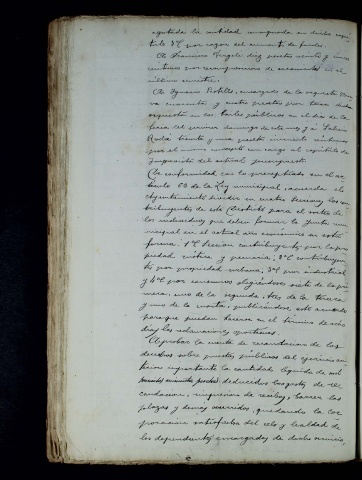 agotada la cantidad consignada en dicho capí-
tulo 3º por razon del aumento de fondos.
A Francisco diez pesetas veinte y cinco
centimos por composiciones de en el
último semestre.
A Ignacio encargado de la orquesta
cuarenta y cuatro pesetas por tocar dicha
orquesta en los bailes públicos en el dia de la
feria del primer domingo de este mes y á
Rodá treinta y una peseta cincuenta centimos
por el mismo concepto con cargo al capítulo de
Imposición del actual presupuesto.
De conformidad con lo preceptuado en el ar-
tículo 66 de la Ley municipal, acuerda el
Ayuntamiento dividir en cuatro Secciones, los con-
tribuyentes de este Distrito para el sorteo de
los individuos que deben formar la Junta mu-
nicipal en el actual año económico en esta
forma. 1ª Seccion contribuyentes por la pro-
piedad rústica y pecuaria; 2ª contribuyen-
tes por propiedad urbana, 3ª por industrial
y 4ª por consumos eligiéndose siete de la pri-
mera, uno de la segunda, tres de la tercera
y uno de la cuarta, publicándose este acuerdo
para que puedan hacerse en el término de ocho
dias las reclamaciones oportunas.
Aprobar la cuenta de recaudacion de los
derechos sobre puestos públicos del ejercicio an-
terior importante la cantidad líquida de mil
pesetas deducidos los gastos de re-
caudacion, impresion de recibos, barrer las
plazas y demas ocurridos, quedando la Cor-
poracion satisfecha del celo y lealdad de
los dependientes encargados de dicho servicio,